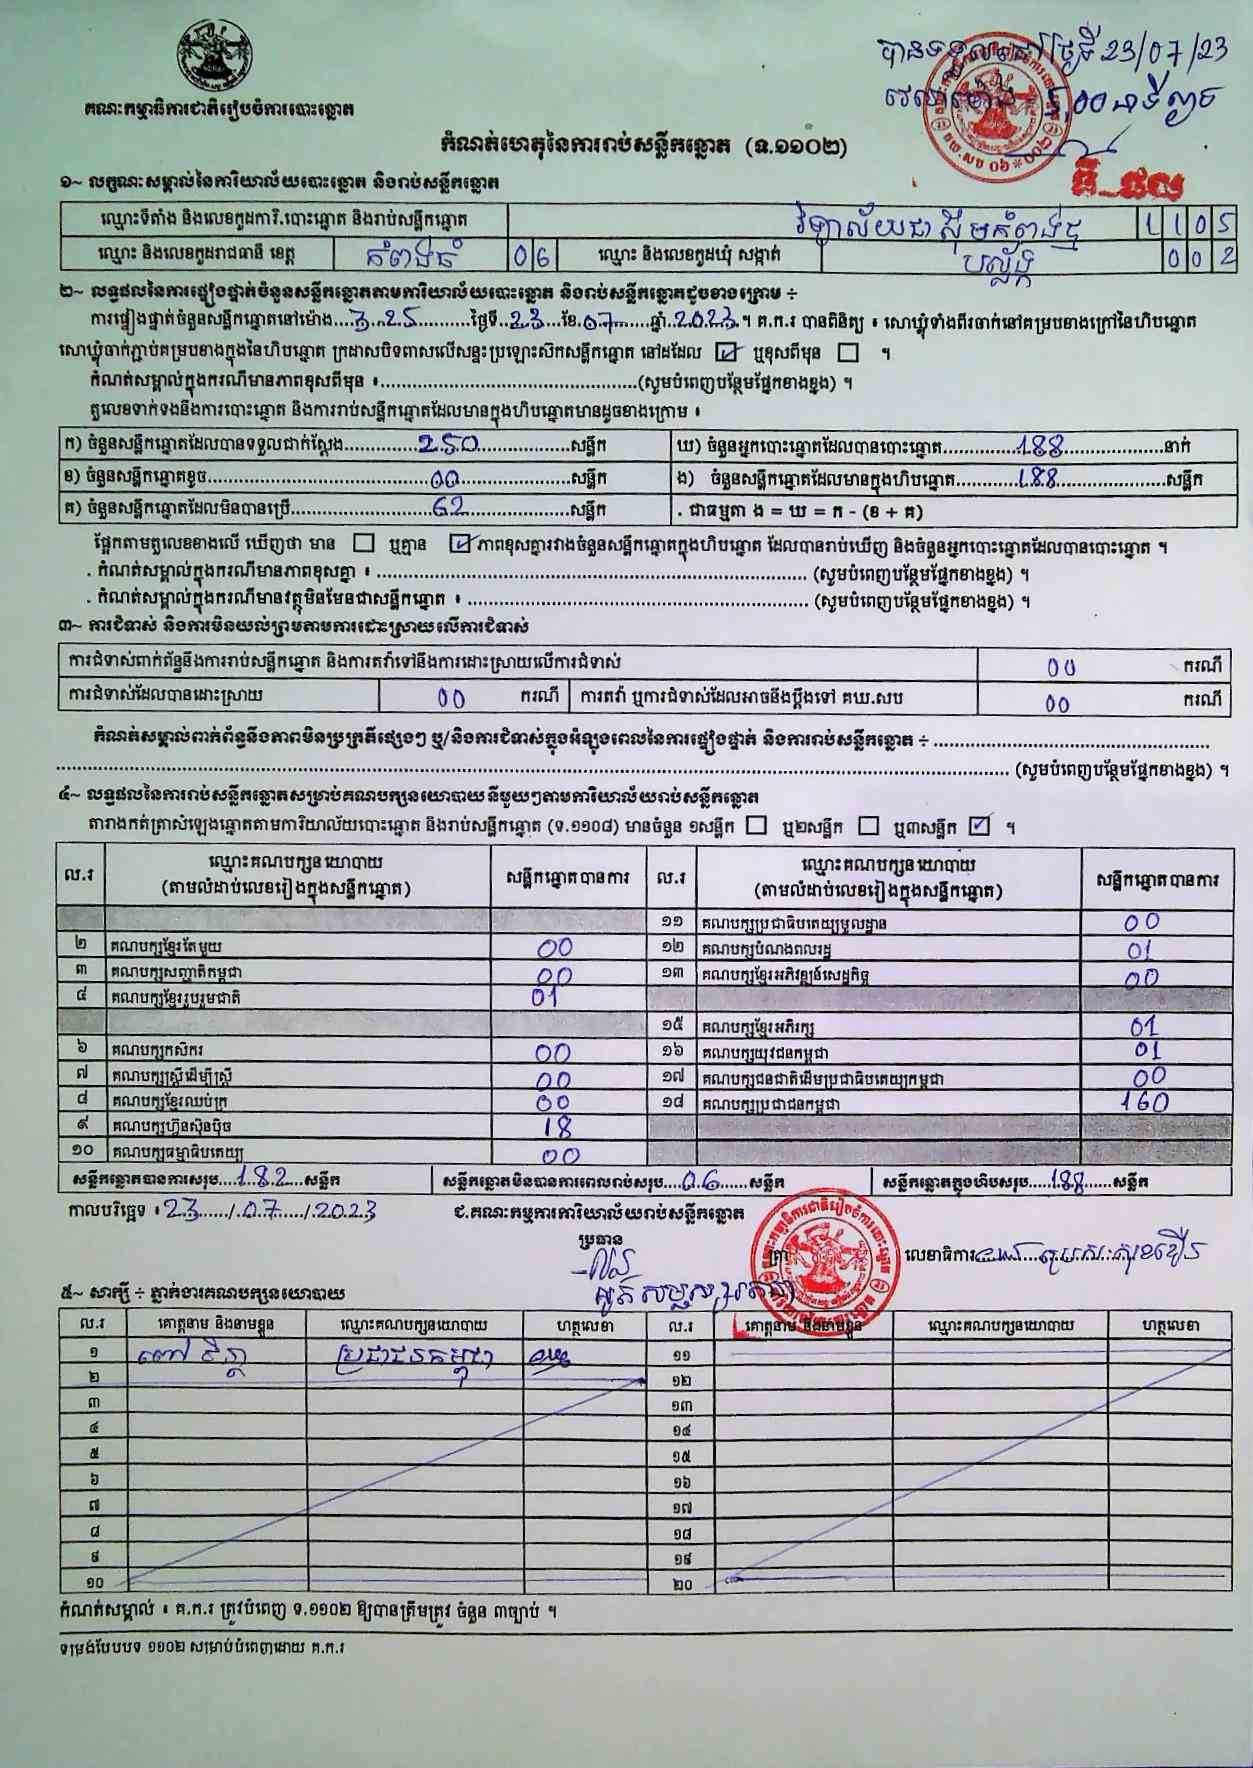 បានទទួលនៅថ្ងៃទី 23/07/23
វេលាម៉ោង 5,00 នាទីល្ងាច
គណៈកម្មាធិការជាតិរៀបចំការបោះឆ្នោត
កំណត់ហេតុនៃការរាប់សន្លឹកឆ្នោត (ទ.១១០២)
១~ លក្ខណៈសម្គាល់នៃការិយាល័យបោះឆ្នោត និងរាប់សន្លឹកឆ្នោត
ឈ្មោះទីតាំង និងលេខកូដការិ.បោះឆ្នោត និងរាប់សន្លឹកឆ្នោត វិទ្យាល័យជាស៊ីមកំពង់ថ្ម 1105
ឈ្មោះ និងលេខកូដរាជធានី ខេត្ត កំពង់ធំ 06 ឈ្មោះ និងលេខកូដឃុំ សង្កាត់ បល្ល័ង្ក 002
២~ លទ្ធផលនៃការផ្ទៀងផ្ទាត់ចំនួនសន្លឹកឆ្នោតតាមការិយាល័យបោះឆ្នោត និងរាប់សន្លឹកឆ្នោតដូចខាងក្រោម ÷
ការផ្ទៀងផ្ទាត់ចំនួនសន្លឹកឆ្នោតនៅម៉ោង...3...25..........ថ្ងៃទី..23..ខែ.07.......ឆ្នាំ.2023.។ គ.ក.រ បានពិនិត្យ ៖ សោឃ្លុំទាំងពីរចាក់នៅគម្របខាងក្រៅនៃហិបឆ្នោត
សោឃ្លុំចាក់ភ្ជាប់គម្របខាងក្នុងនៃហិបឆ្នោត ក្រដាសបិទពាសលើសន្ទះប្រឡោះស៊កសន្លឹកឆ្នោត នៅដដែល ☑ ឬខុសពីមុន ☐ ។
កំណត់សម្គាល់ក្នុងករណីមានភាពខុសពីមុន ៖..........................................(សូមបំពេញបន្ថែមផ្នែកខាងខ្នង) ។
តួលេខទាក់ទងនឹងការបោះឆ្នោត និងការរាប់សន្លឹកឆ្នោតដែលមានក្នុងហិបឆ្នោតមានដូចខាងក្រោម ៖
ក) ចំនួនសន្លឹកឆ្នោតដែលបានទទួលជាក់ស្តែង............250...............សន្លឹក ឃ) ចំនួនអ្នកបោះឆ្នោតដែលបានបោះឆ្នោត............188....................នាក់
ខ) ចំនួនសន្លឹកឆ្នោតខូច....................00....................សន្លឹក ង) ចំនួនសន្លឹកឆ្នោតដែលមានក្នុងហិបឆ្នោត..........188....................សន្លឹក
គ) ចំនួនសន្លឹកឆ្នោតដែលមិនបានប្រើ....................62...............សន្លឹក . ជាធម្មតា ង = ឃ = ក - (ខ + គ)
ផ្អែកតាមតួលេខខាងលើ ឃើញថា មាន ☐ ឬគ្មាន ☑ ភាពខុសគ្នារវាងចំនួនសន្លឹកឆ្នោតក្នុងហិបឆ្នោត ដែលបានរាប់ឃើញ និងចំនួនអ្នកបោះឆ្នោតដែលបានបោះឆ្នោត ។
. កំណត់សម្គាល់ក្នុងករណីមានភាពខុសគ្នា ៖ .................................................. (សូមបំពេញបន្ថែមផ្នែកខាងខ្នង) ។
. កំណត់សម្គាល់ក្នុងករណីមានវត្ថុមិនមែនជាសន្លឹកឆ្នោត ៖ ........................................ (សូមបំពេញបន្ថែមផ្នែកខាងខ្នង) ។
៣~ ការជំទាស់ និងការមិនយល់ព្រមតាមការដោះស្រាយលើការជំទាស់
ការជំទាស់ពាក់ព័ន្ធនឹងការរាប់សន្លឹកឆ្នោត និងការតវ៉ាទៅនឹងការដោះស្រាយលើការជំទាស់ 00 ករណី
ការជំទាស់ដែលបានដោះស្រាយ 00 ករណី ការតវ៉ា ឬការជំទាស់ដែលអាចនឹងប្តឹងទៅ គឃ.សប 00 ករណី
កំណត់សម្គាល់ពាក់ព័ន្ធនឹងភាពមិនប្រក្រតីផ្សេងៗ ឬ/និងការជំទាស់ក្នុងអំឡុងពេលនៃការផ្ទៀងផ្ទាត់ និងការរាប់សន្លឹកឆ្នោត ÷ ........................................
.................................................. (សូមបំពេញបន្ថែមផ្នែកខាងខ្នង) ។
៤~ លទ្ធផលនៃការរាប់សន្លឹកឆ្នោតសម្រាប់គណបក្សនយោបាយនីមួយៗតាមការិយាល័យរាប់សន្លឹកឆ្នោត
តារាងកត់ត្រាសំឡេងឆ្នោតតាមការិយាល័យបោះឆ្នោត និងរាប់សន្លឹកឆ្នោត (ទ.១១០៨) មានចំនួន ១សន្លឹក ☐ ឬ២សន្លឹក ☐ ឬ៣សន្លឹក ☑ ។
ល.រ ឈ្មោះគណបក្សនយោបាយ (តាមលំដាប់លេខរៀងក្នុងសន្លឹកឆ្នោត) សន្លឹកឆ្នោតបានការ ល.រ ឈ្មោះគណបក្សនយោបាយ (តាមលំដាប់លេខរៀងក្នុងសន្លឹកឆ្នោត) សន្លឹកឆ្នោតបានការ
១១ គណបក្សប្រជាធិបតេយ្យមូលដ្ឋាន 00
២ គណបក្សខ្មែរតែមួយ 00 ១២ គណបក្សបំណងពលរដ្ឋ 01
៣ គណបក្សសញ្ជាតិកម្ពុជា 00 ១៣ គណបក្សខ្មែរអភិវឌ្ឍន៍សេដ្ឋកិច្ច 00
៤ គណបក្សខ្មែររួបរួមជាតិ 01
១៥ គណបក្សខ្មែរអភិរក្ស 01
៦ គណបក្សកសិករ 00 ១៦ គណបក្សយុវជនកម្ពុជា 01
៧ គណបក្សស្ត្រីដើម្បីស្ត្រី 00 ១៧ គណបក្សជនជាតិដើមប្រជាធិបតេយ្យកម្ពុជា 00
៨ គណបក្សខ្មែរឈប់ក្រ 00 ១៨ គណបក្សប្រជាជនកម្ពុជា 160
៩ គណបក្សហ៊្វុនស៊ិនប៉ិច 18
១០ គណបក្សធម្មាធិបតេយ្យ 00
សន្លឹកឆ្នោតបានការសរុប....182...សន្លឹក សន្លឹកឆ្នោតមិនបានការពេលរាប់សរុប....06......សន្លឹក សន្លឹកឆ្នោតក្នុងហិបសរុប.....188......សន្លឹក
កាលបរិច្ឆេទ ៖ 23....../.07....../.2023 ជ.គណៈកម្មការការិយាល័យរាប់សន្លឹកឆ្នោត
ប្រធាន
ត្រា លេខាធិការ
៥~ សាក្សី ÷ ភ្នាក់ងារគណបក្សនយោបាយ
ល.រ គោត្តនាម និងនាមខ្លួន ឈ្មោះគណបក្សនយោបាយ ហត្ថលេខា ល.រ គោត្តនាម និងនាមខ្លួន ឈ្មោះគណបក្សនយោបាយ ហត្ថលេខា
១ ប្រជាជនកម្ពុជា ១១
២ ១២
៣ ១៣
៤ ១៤
៥ ១៥
៦ ១៦
៧ ១៧
៨ ១៨
៩ ១៩
១០ ២០
កំណត់សម្គាល់ ៖ គ.ក.រ ត្រូវបំពេញ ទ.១១០២ ឱ្យបានត្រឹមត្រូវ ចំនួន ៣ច្បាប់ ។
ទម្រង់បែបបទ ១១០២ សម្រាប់បំពេញដោយ គ.ក.រ